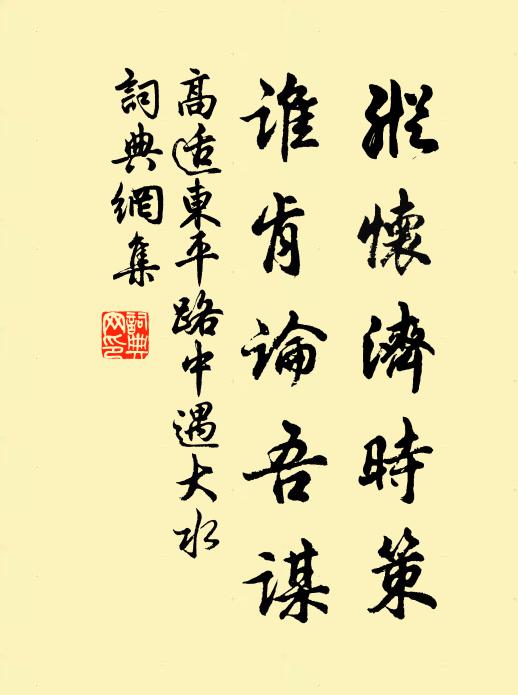 縱懷濟時策
誰肯論吾謀
高适東平路中遇大水
詞典網集
詞典網印